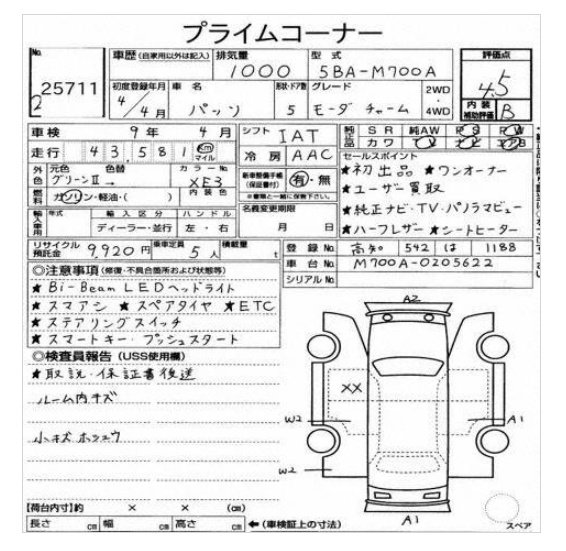 プライムコーナー
No. 25711
2
車歴(自家用以外は記入)
排気量 1000
型式 5BA-M700A
評価点 4.5
初度登録年月 4/4月
車名 パッソ
形状・ドア数 5
グレード モーダ チャーム
2WD・4WD
内装補助評価 B
車検 9年 4月
シフト IAT
純正品 SR 純AW PS PW
カワ TV ナビ エアB
走行 43,581 km マイル
冷房 AAC
セールスポイント
外色 元色 グリーンII → 色替
カラーNo. XE3
新車整備手帳(保証書付) 有・無
※書類と一緒に保管下さい。
★初出品 ★ワンオーナー
★ユーザー買取
★純正ナビ・TV・パノラマビュー
★ハーフレザー ★シートヒーター
燃料 ガソリン・軽油・( )
内装色
名義変更期限 月 日
輸入車用 年式 輸入区分 ディーラー・並行 ハンドル 左・右
リサイクル預託金 9,920円
乗車定員 5人
積載量 t
登録No. 高知 542 は 1188
車台No. M700A-0205622
シリアルNo.
◎注意事項(修復・不具合箇所および状態等)
★Bi-Beam LEDヘッドライト
★スマアシ ★スペアタイヤ ★ETC
★ステアリングスイッチ
★スマートキー・プッシュスタート
◎検査員報告(USS使用欄)
★取説・保証書後送
ルーム内キズ
小キズ ホシュウ
A2
XX
W2
A1
W2
A1
スペア
【荷台内寸】約 × × (cm)
長さ cm 幅 cm 高さ cm ←(車検証上の寸法)